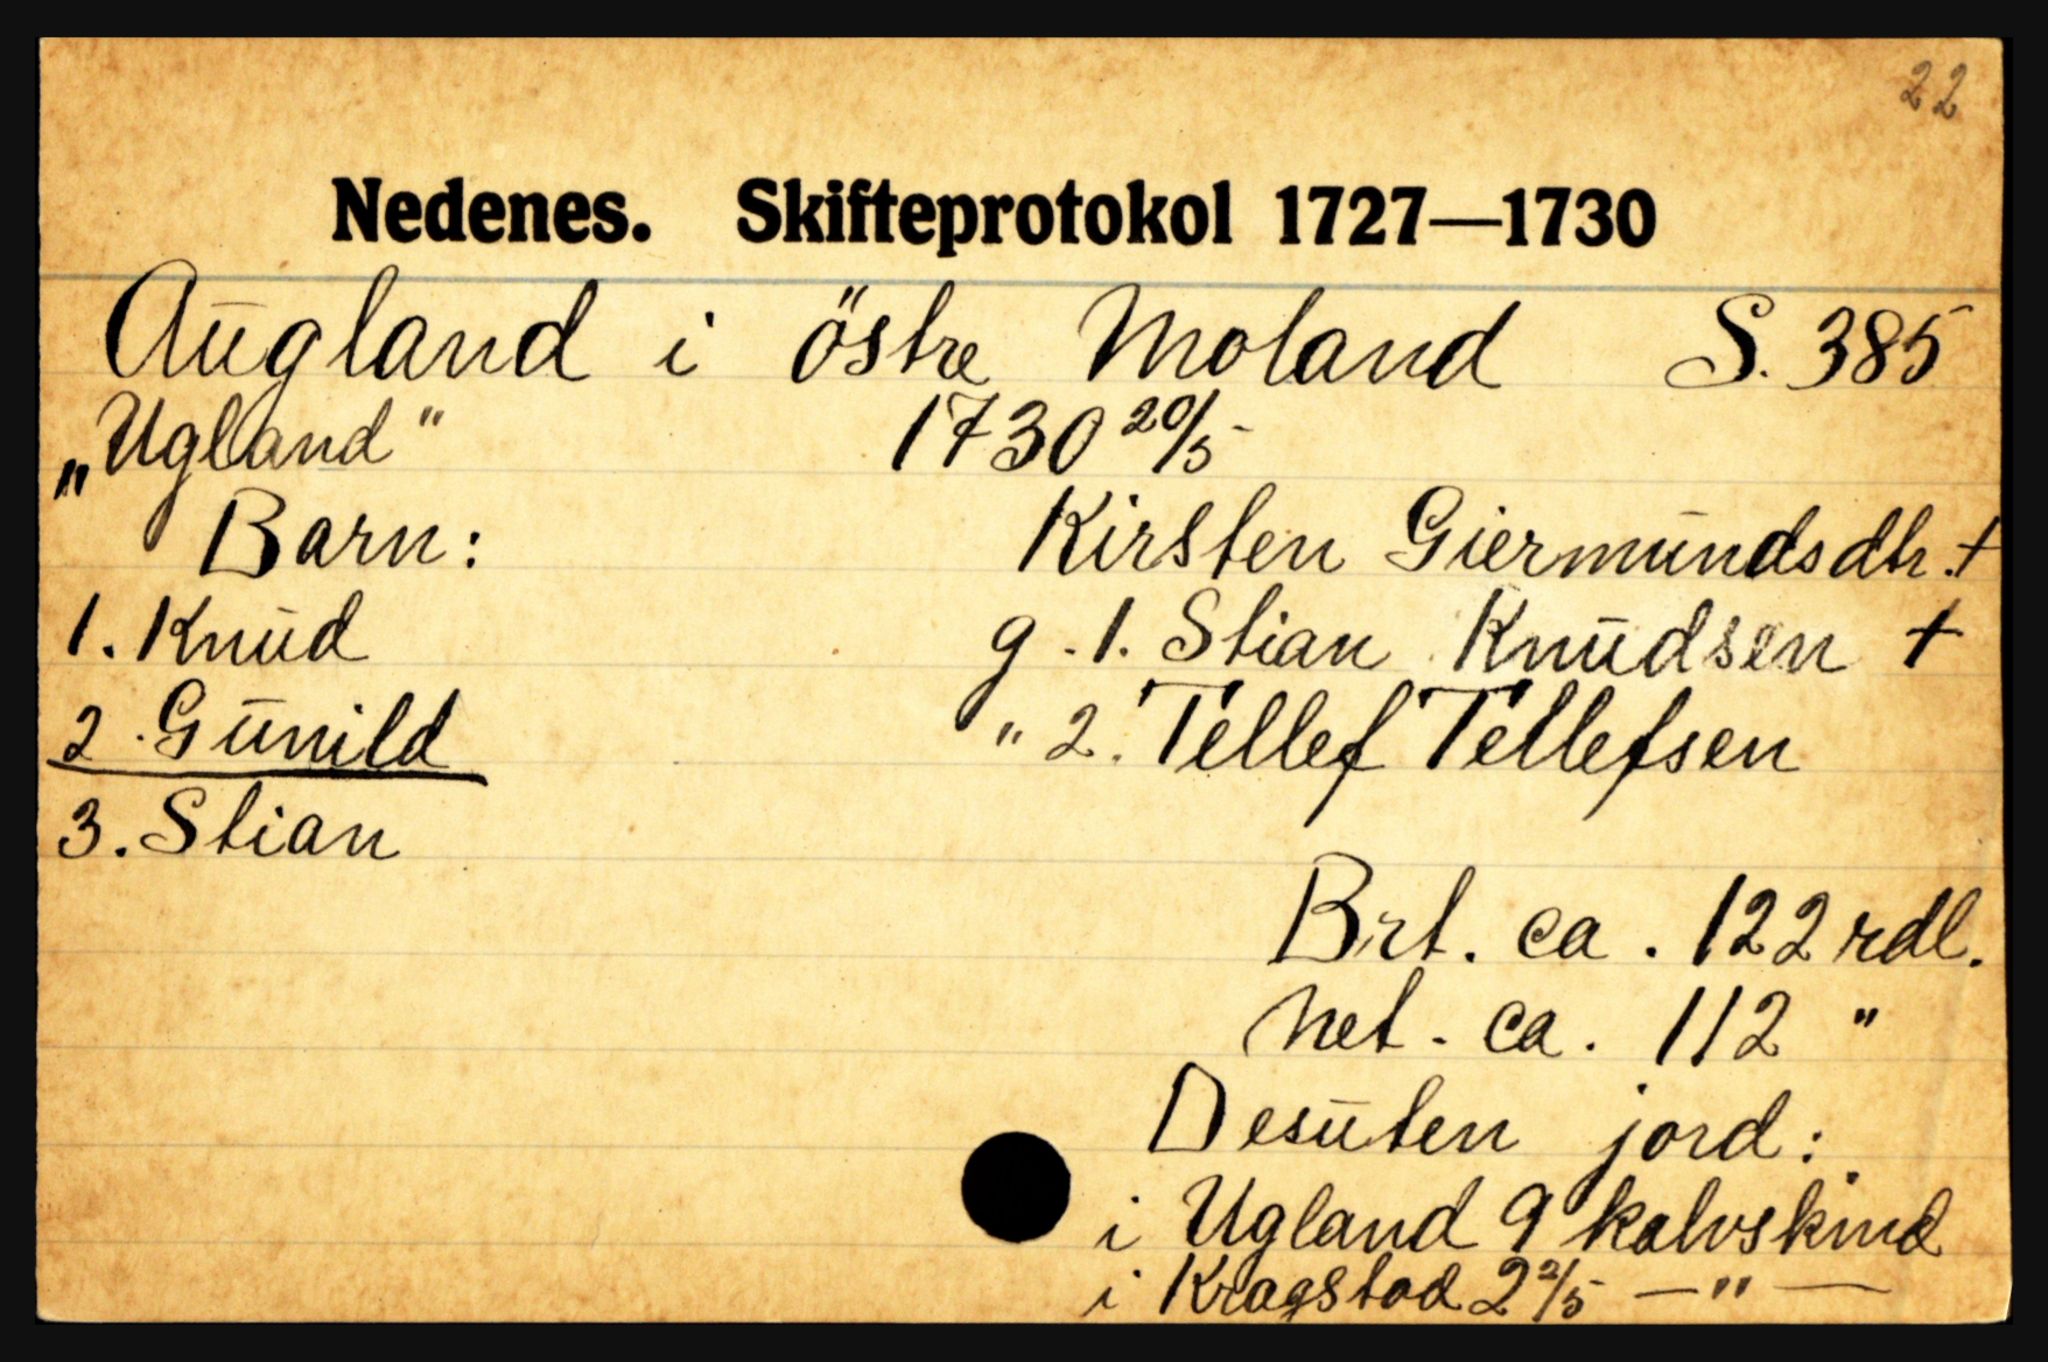 22
Nedenes. Skifteprotokol 1727—1730
Augland i östre Moland S. 385
„Ugland" 1730 20/5
Barn: Kirsten Giermundsdtr. +
1. Knud g. 1. Stian Knudsen +
2. Gunild " 2. Tellef Tellefsen
3. Stian
Brt. ca. 122 rdl.
Net. ca. 112 "
Desuten jord:
i Ugland 9 kalvskind
i Kragstad 2 2/5 — " —